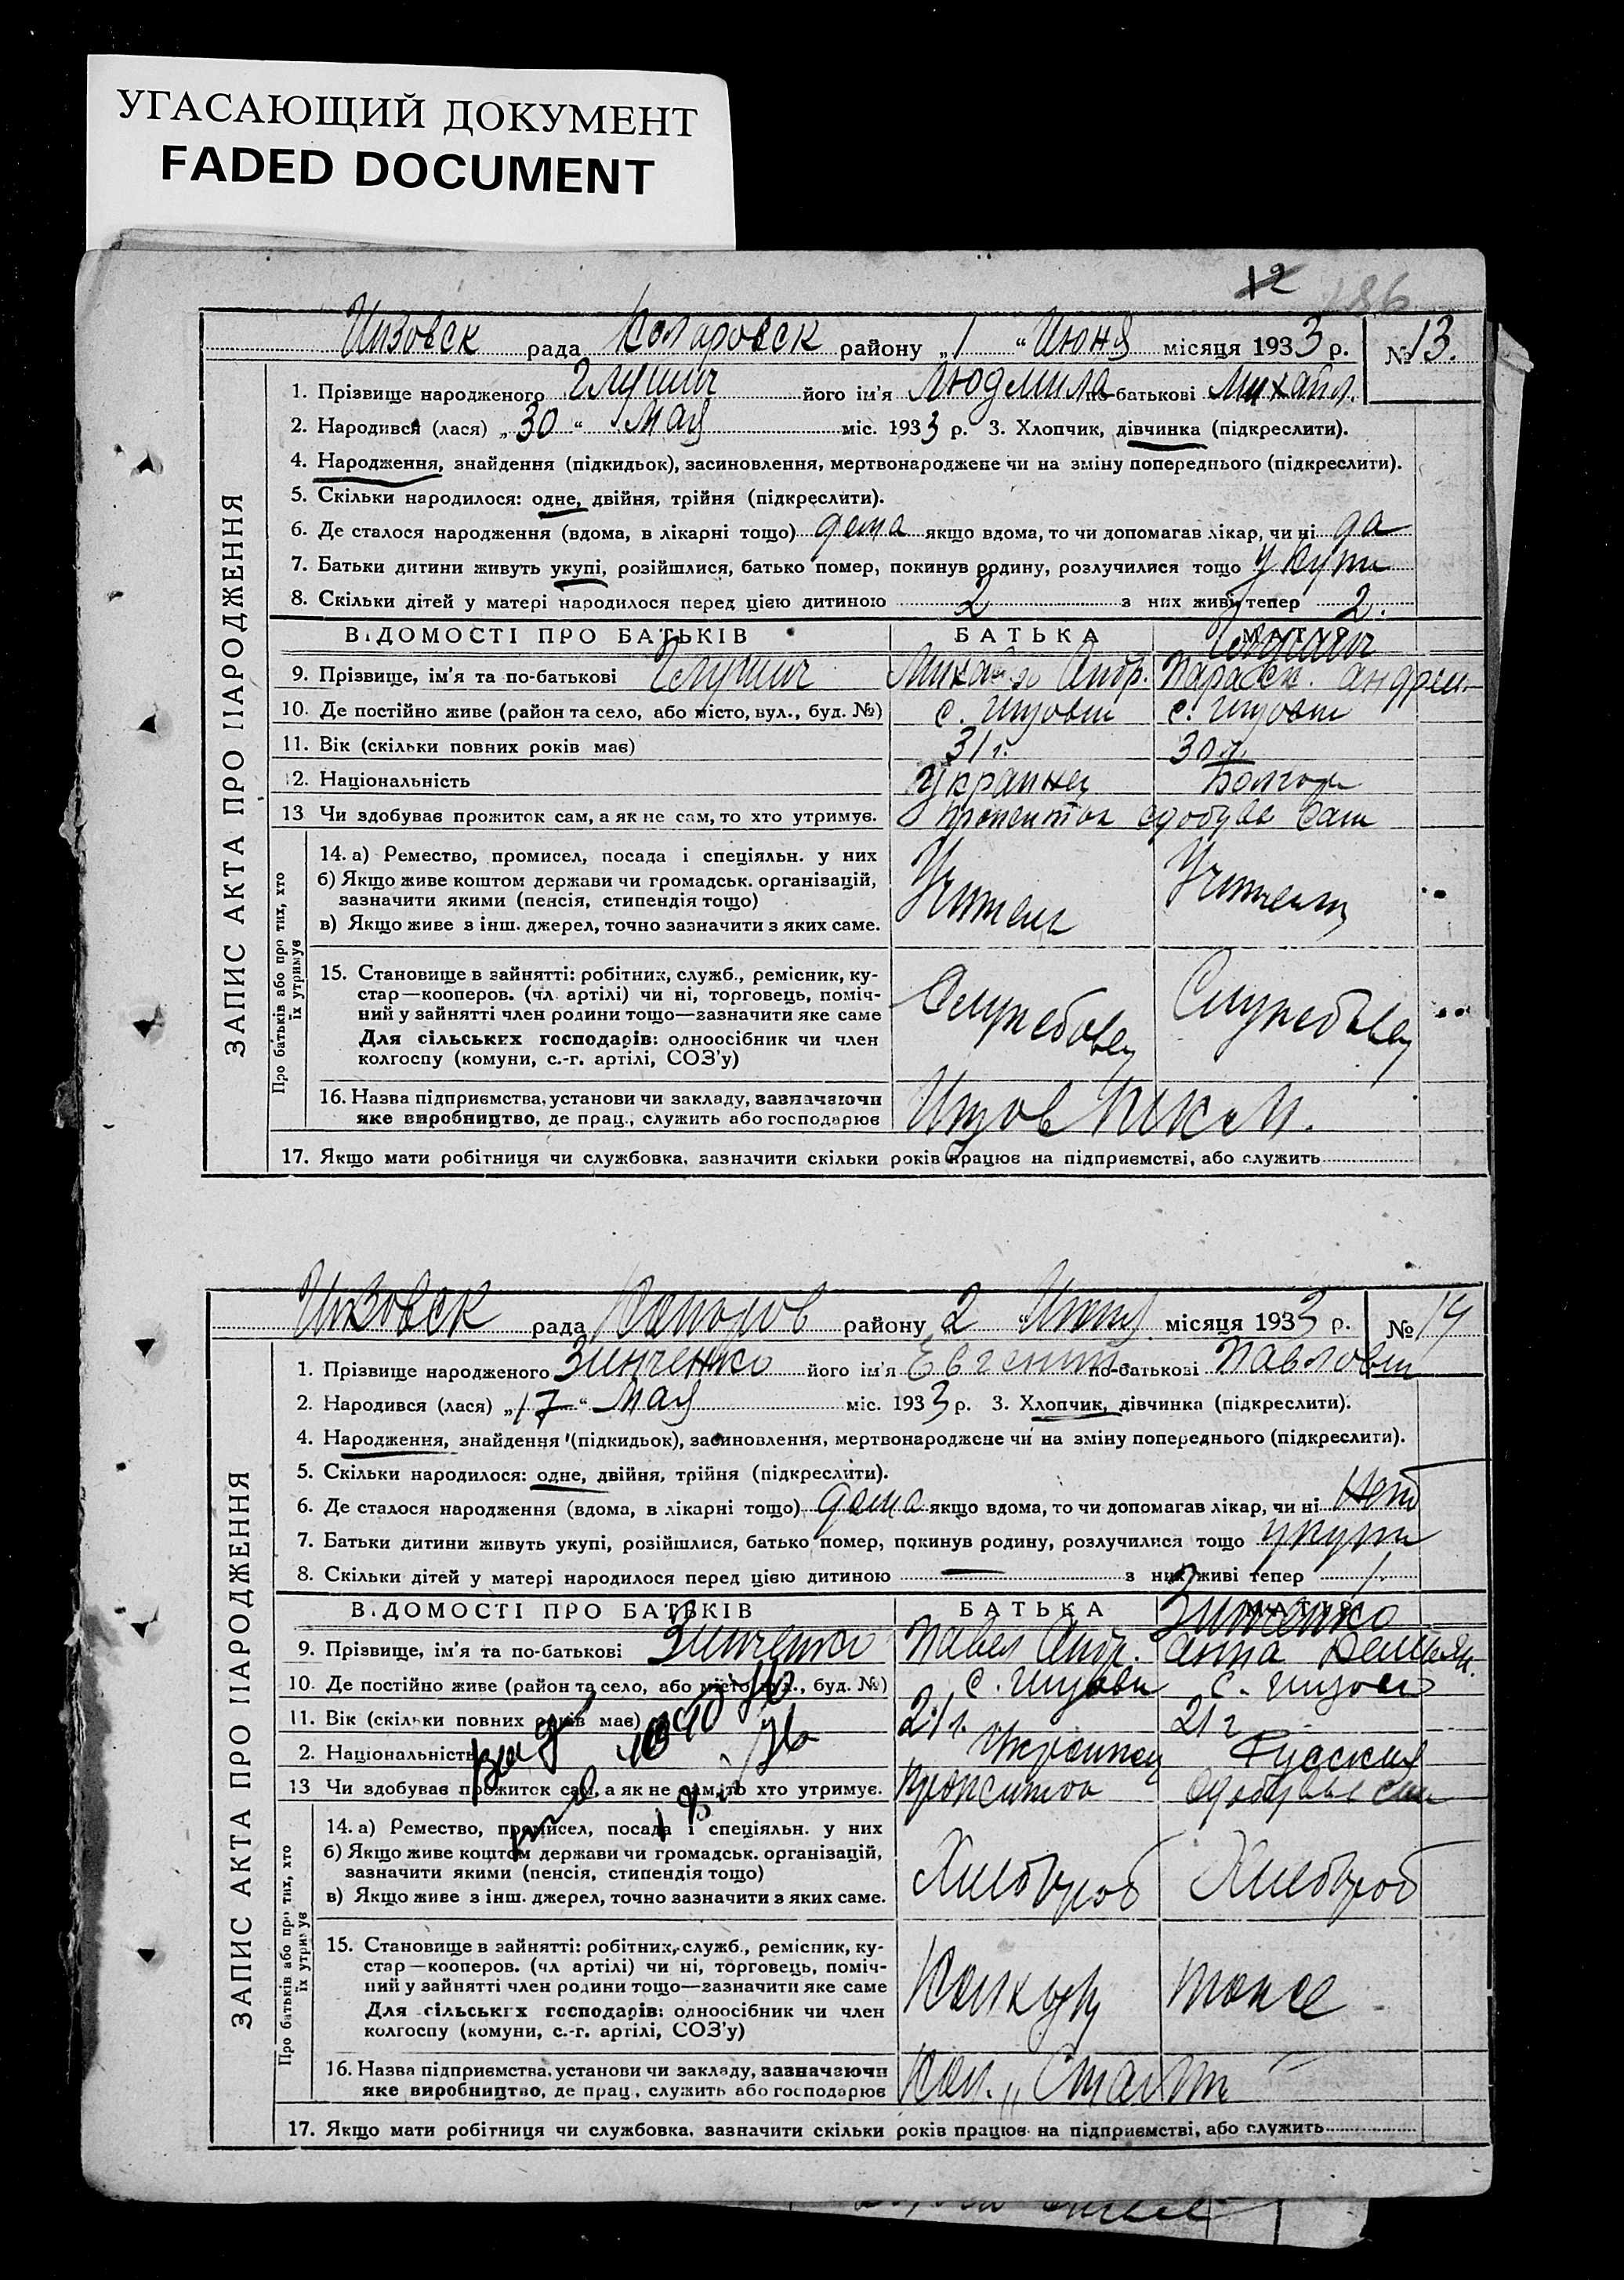 УГАСАЮЩИЙ ДОКУМЕНТ
FADED DOCUMENT
12 186
Инзовск рада Коларовск району „1 “ Июня місяця 1933 р. № 13.
1. Прізвище народженого його ім'я Людмила по-батькові Михайл.
2. Народився (лася) „30“ Мая міс. 1933 р. 3. Хлопчик, дівчинка (підкреслити).
4. Народження, знайдення (підкидьок), засиновлення, мертвонароджене чи на зміну попереднього (підкреслити).
5. Скільки народилося: одне, двійня, трійня (підкреслити).
6. Де сталося народження (вдома, в лікарні тощо) дома якщо вдома, то чи допомагав лікар, чи ні да
7. Батьки дитини живуть укупі, розійшлися, батько помер, покинув родину, розлучилися тощо укупи
8. Скільки дітей у матері народилося перед цією дитиною 2 з них живі тепер 2.
ВІДОМОСТІ ПРО БАТЬКІВ БАТЬКА МАТЕРІ
9. Прізвище, ім'я та по-батькові Михайло Андр. Параск. Андреи.
10. Де постійно живе (район та село, або місто, вул., буд. №) с. Инзовк с. Инзовк
11. Вік (скільки повних років має) 31 г. 30 л.
12. Національність Украинец Болгарк
13 Чи здобуває прожиток сам, а як не сам, то хто утримує. прожиток здобувае сам
14. а) Ремество, промисел, посада і спеціяльн. у них
б) Якщо живе коштом держави чи громадськ. організацій,
зазначити якими (пенсія, стипендія тощо)
в) Якщо живе з інш. джерел, точно зазначити з яких саме.
Учитель Учитель
15. Становище в зайнятті: робітник, служб., ремісник, ку-
стар—кооперов. (чл. артілі) чи ні, торговець, поміч-
ний у зайнятті член родини тощо—зазначити яке саме
Для сільських господарів: одноосібник чи член
колгоспу (комуни, с.-г. артілі, СОЗ'у)
Служебовец Служебовец
16. Назва підприємства, установи чи закладу, зазначаючи
яке виробництво, де прац., служить або господарює
Инзов
17. Якщо мати робітниця чи службовка, зазначити скільки років працює на підприємстві, або служить
ЗАПИС АКТА ПРО НАРОДЖЕННЯ
Про батьків або про тих, хто
їх утримує
Инзовск рада Коларов району „2 “ Июня місяця 1933 р. № 14
1. Прізвище народженого Зинченко його ім'я Евгений по-батькові Павлович
2. Народився (лася) „17“ Мая міс. 1933 р. 3. Хлопчик, дівчинка (підкреслити).
4. Народження, знайдення (підкидьок), засиновлення, мертвонароджене чи на зміну попереднього (підкреслити).
5. Скільки народилося: одне, двійня, трійня (підкреслити).
6. Де сталося народження (вдома, в лікарні тощо) дома якщо вдома, то чи допомагав лікар, чи ні нет
7. Батьки дитини живуть укупі, розійшлися, батько помер, покинув родину, розлучилися тощо укупи
8. Скільки дітей у матері народилося перед цією дитиною — з них живі тепер 1.
ВІДОМОСТІ ПРО БАТЬКІВ БАТЬКА МАТЕРІ
Зинченко
9. Прізвище, ім'я та по-батькові Зинченко Павел Андр. Анна Демьян.
10. Де постійно живе (район та село, або місто, вул., буд. №) с. Инзовк с. Инзовк
11. Вік (скільки повних років має) 21 г. 21 г
2. Національність Украинец Русская
13 Чи здобуває прожиток сам, а як не сам, то хто утримує. прожиток здобувае сам
14. а) Ремество, промисел, посада і спеціяльн. у них
б) Якщо живе коштом держави чи громадськ. організацій,
зазначити якими (пенсія, стипендія тощо)
в) Якщо живе з інш. джерел, точно зазначити з яких саме.
Хлебороб Хлебороб
15. Становище в зайнятті: робітник, служб., ремісник, ку-
стар—кооперов. (чл артілі) чи ні, торговець, поміч-
ний у зайнятті член родини тощо—зазначити яке саме
Для сільських господарів: одноосібник чи член
колгоспу (комуни, с.-г. артілі, СОЗ'у)
тоже
16. Назва підприємства, установи чи закладу, зазначаючи
яке виробництво, де прац., служить або господарює
Кол.
17. Якщо мати робітниця чи службовка, зазначити скільки років працює на підприємстві, або служить
ЗАПИС АКТА ПРО НАРОДЖЕННЯ
Про батьків або про тих, хто
їх утримує